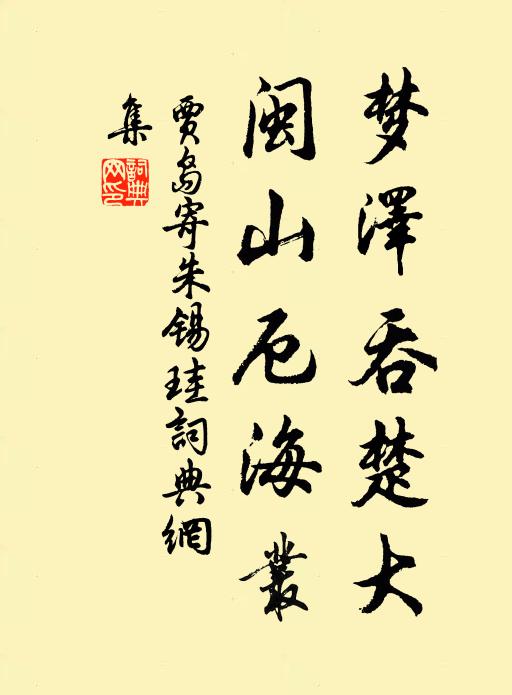 梦泽吞楚大
闽山厄海丛
贾岛寄朱锡珪詞典網
集
詞典網印